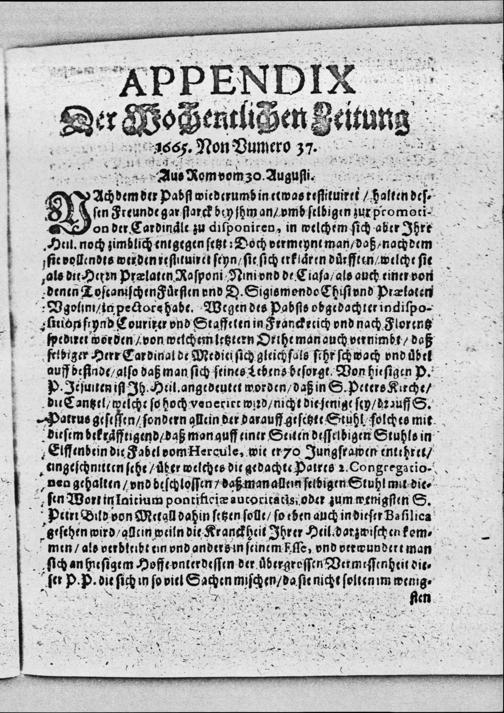 APPENDIX
Der Wochentlichen Zeitung
1665. Non Vumero 37.
Aus Rom vom 30. Augusti.
NAchdem der Pabst wiederumb in etwas restituiret / halten des-
sen Freunde gar starck bey ihm an / umb selbigen zur promoti-
on der Cardinäle zu disponiren, in welchem sich aber Ihre
Heil. noch zimblich entgegen setzt: Doch vermeynt man / daß / nachdem
sie vollendts werden restituiret seyn / sie sich erklären dürfften / welche sie
als die Herzn Prælaten Rasponi, Nini und de Ciasa / als auch einer von
denen Toscanischen Fürsten und D. Sigismondo Chisi und Prælaten
Vgolini / in pectore habe. Wegen des Pabsts obgedachter indispo-
sition seynd Couriter und Staffeten in Franckreich und nach Florentz
spediret worden / von welchem letztern Orthe man auch vernimbt / daß
selbiger Herr Cardinal de Medici sich gleichfals sehr schwach und übel
auff befinde / also daß man sich seines Lebens besorgt. Von hiesigen P.
P. Jesuiten ist Jh. Heil. angedeutet worden / daß in S. Peters Kirche /
die Cantzel / welche so hoch veneriret wird / nicht diejenige sey / drauff S.
Patrus gesessen / sondern allein der darauff gesetzte Stuhl / solches mit
diesem bekräfftigend / daß man auff einer Seiten desselbigen Stuhls in
Elffenbein die Fabel vom Hercule, wie er 70 Jungfrawen entehret /
eingeschnitten sehe / über welches die gedachte Patres 2. Congregatio-
nen gehalten / und beschlossen / daß man allein selbigen Stuhl mit die-
sen Wort in Initium pontificiæ autoritatis, oder zum wenigsten S.
Petri Bild von Metall dahin setzen solle / so eben auch in dieser Basilica
gesehen wird / allein weiln die Kranckheit Ihrer Heil. darzwischen kom-
men / als verbleibt ein und anders in seinem Esse, und verwundert man
sich an hiesigem Hoffe unterdessen der übergrossen Vermessenheit die-
ser P. P. die sich in so viel Sachen mischen / da sie nicht solten im wenig-
sten